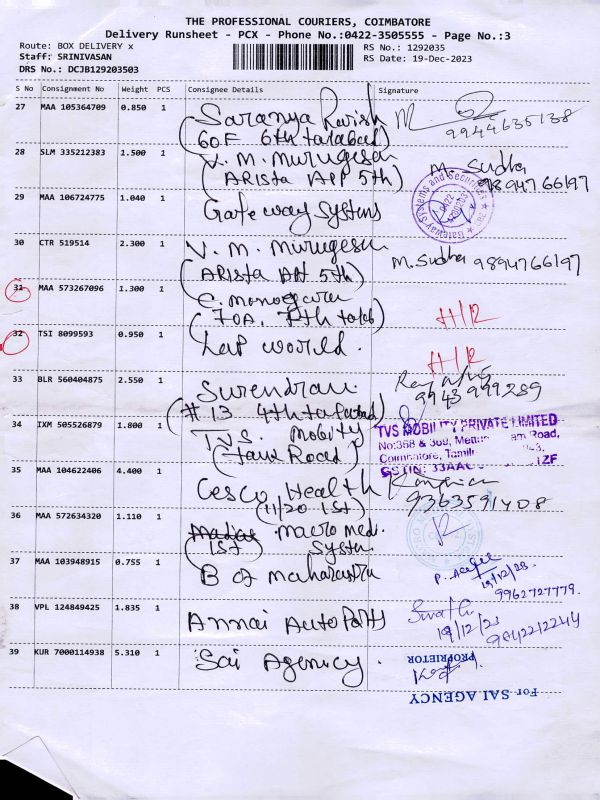 THE PROFESSIONAL COURIERS, COIMBATORE
Delivery Runsheet - PCX - Phone No.:0422-3505555 - Page No.:3
Route: BOX DELIVERY x
RS No.: 1292035
Staff: SRINIVASAN
RS Date: 19-Dec-2023
DRS No.: DCJB129203503
S No Consignment No Weight PCS Consignee Details Signature
27 MAA 105364709 0.850 1 Saranya
9944635138
(60F 6th
28 SLM 335212383 1.500 1 V. M. Murugesan M. Sudha
(ARista APP 5th) 9894766197
29 MAA 106724775 1.040 1 Gateway Systems
Gateway Systems and
30 CTR 519514 2.300 1 V. M. Murugesan M. Sudha 9894766197
(ARista APP 5th)
31 MAA 573267096 1.300 1 H/R
(70A, 7th
32 TSI 8099593 0.950 1 Lap world. H/R
33 BLR 560404875 2.550 1 Surendran
9943999289
(#13 4th
34 IXM 505526879 1.800 1 TVS. Mobity
TVS MOBILITY PRIVATE LIMITED
No:368 & 369, Road,
Coimbatore,
GSTIN: 33AAC 1ZF
35 MAA 104622406 4.400 1 Cesco Health
(11/20 1st) 9363591408
36 MAA 572634320 1.110 1 macro med.
(1st) System
37 MAA 103948915 0.755 1 B of maharastra
19/12/23.
9962727779.
38 VPL 124849425 1.835 1 Annai Auto Parts
19/12/23
9842212244
39 KUR 7000114938 5.310 1 Sai Agency.
For SAI AGENCY
PROPRIETOR